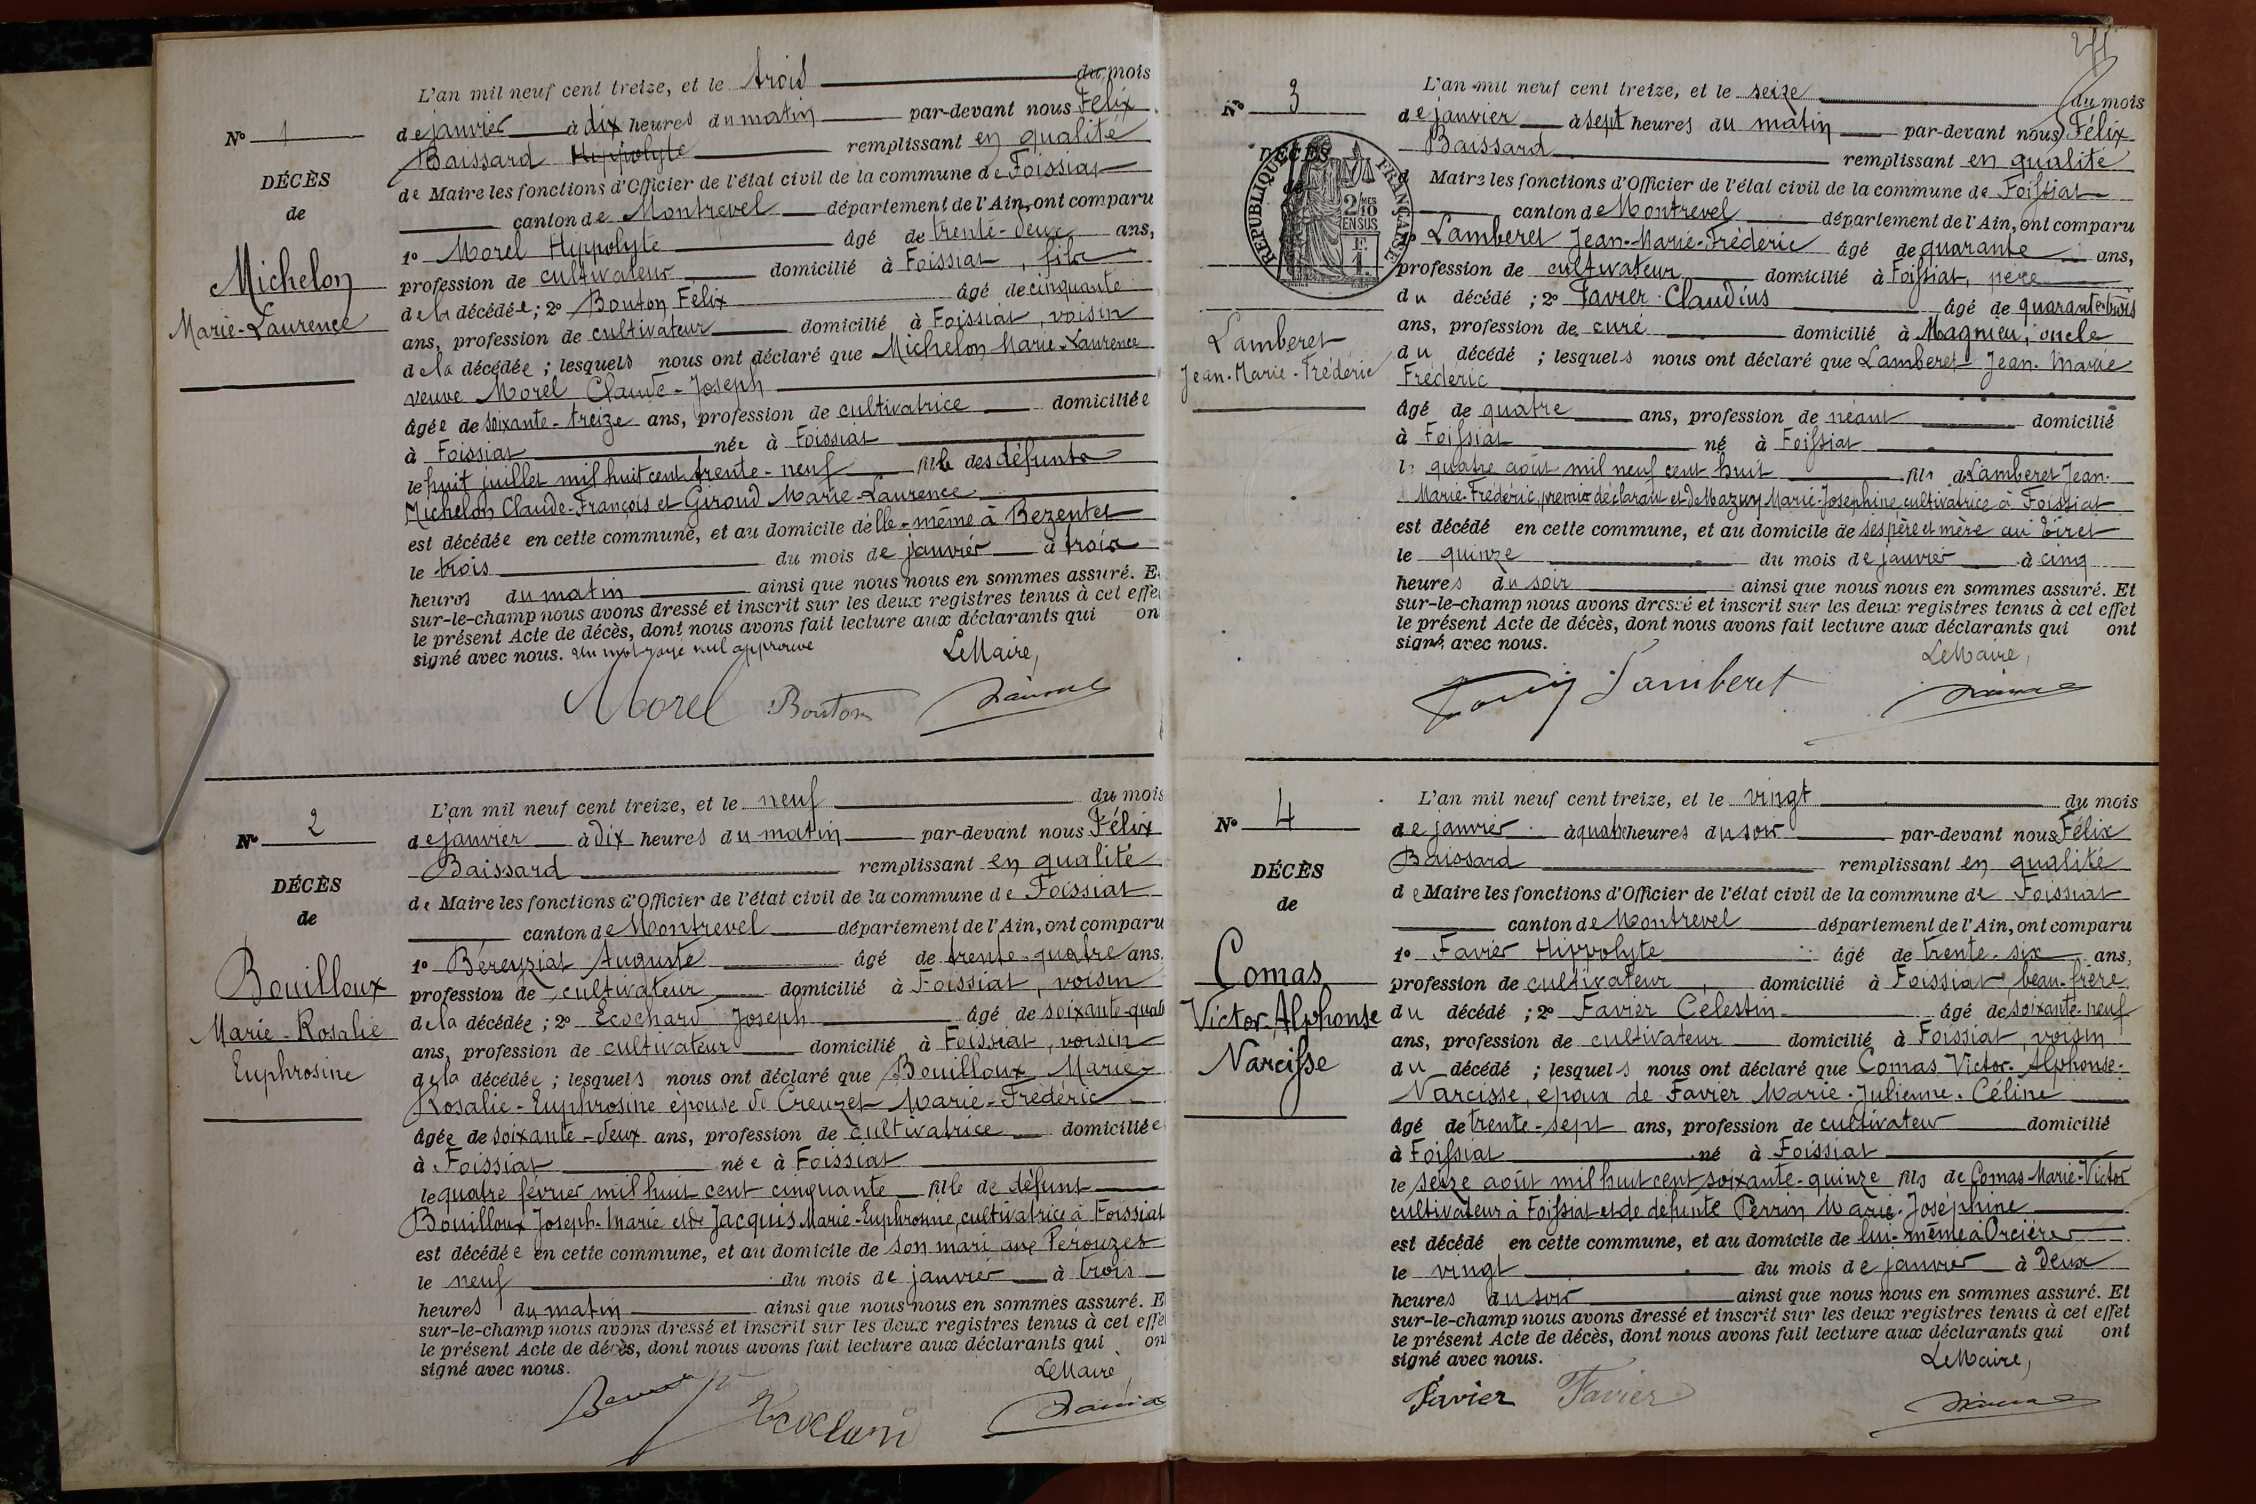 L'an mil neuf cent treize, et le trois du mois
N° 1
de janvier à dix heures du matin par-devant nous Félix
Baissard Hippolyte remplissant en qualité
DÉCÈS
de Maire les fonctions d'Officier de l'état civil de la commune de Foissiat
de
canton de Montrevel département de l'Ain, ont comparu
1° Morel Hyppolyte âgé de trente-deux ans,
Michelon
profession de cultivateur domicilié à Foissiat, fils
de la décédée; 2° Bouton Felix âgé de cinquante
Marie-Laurence
ans, profession de cultivateur domicilié à Foissiat, voisin
de la décédée; lesquels nous ont déclaré que Michelon Marie Laurence
veuve Morel Claude-Joseph
âgée de soixante-treize ans, profession de cultivatrice domiciliée
à Foissiat née à Foissiat
le huit juillet mil huit cent trente-neuf fille des défunts
Michelon Claude-François et Giroud Marie-Laurence
est décédée en cette commune, et au domicile d'elle-même à Bezentet
le trois du mois de janvier à trois
heures du matin ainsi que nous nous en sommes assuré. E
sur-le-champ nous avons dressé et inscrit sur les deux registres tenus à cet effe
le présent Acte de décès, dont nous avons fait lecture aux déclarants qui on
signé avec nous. un mot rayé nul approuvé Le Maire,
Morel Bouton
L'an mil neuf cent treize, et le neuf du mois
N° 2
de janvier à dix heures du matin par-devant nous Félix
Baissard remplissant en qualité
DÉCÈS
de Maire les fonctions d'Officier de l'état civil de la commune de Foissiat
de
canton de Montrevel département de l'Ain, ont comparu
1° Béreyziat Auguste âgé de trente-quatre ans,
Bouilloux
profession de cultivateur domicilié à Foissiat, voisin
Marie-Rosalie
de la décédée; 2° Ecochard Joseph âgé de soixante-quat
ans, profession de cultivateur domicilié à Foissiat, voisin
Euphrosine
de la décédée; lesquels nous ont déclaré que Bouilloux Marie-
Rosalie-Euphrosine épouse de Creuzet Marie-Frédéric
âgée de soixante-deux ans, profession de cultivatrice domiciliée
à Foissiat née à Foissiat
le quatre février mil huit cent cinquante fille de défunt
Bouilloux Joseph-Marie et de Jacquis Marie-Euphrosine, cultivatrice à Foissiat
est décédée en cette commune, et au domicile de son mari aux Perouzes
le neuf du mois de janvier à trois
heures du matin ainsi que nous nous en sommes assuré. E
sur-le-champ nous avons dressé et inscrit sur les deux registres tenus à cet effe
le présent Acte de décès, dont nous avons fait lecture aux déclarants qui ont
signé avec nous. Le Maire,
Ecochard
L'an mil neuf cent treize, et le seize du mois
N° 3
de janvier à sept heures du matin par-devant nous Félix
Baissard remplissant en qualité
DÉCÈS
de
RÉPUBLIQUE FRANÇAISE
2 MES 10 EN SUS
1 F.
d Maire les fonctions d'Officier de l'état civil de la commune de Foissiat
canton de Montrevel département de l'Ain, ont comparu
1° Lamberet Jean-Marie-Frédéric âgé de quarante ans,
profession de cultivateur domicilié à Foissiat, père
du décédé; 2° Favier Claudius âgé de quarante trois
Lamberet
ans, profession de curé domicilié à Magnieu, oncle
Jean-Marie-Frédéric
du décédé; lesquels nous ont déclaré que Lamberet Jean-Marie
Frédéric
âgé de quatre ans, profession de néant domicilié
à Foissiat né à Foissiat
le quatre août mil neuf cent huit fils de Lamberet Jean-
Marie-Frédéric, premier déclarant et de Mazuy Marie-Josephine, cultivatrice à Foissiat
est décédé en cette commune, et au domicile de ses père et mère au Tiret
le quinze du mois de janvier à cinq
heures du soir ainsi que nous nous en sommes assuré. Et
sur-le-champ nous avons dressé et inscrit sur les deux registres tenus à cet effet
le présent Acte de décès, dont nous avons fait lecture aux déclarants qui ont
signé avec nous. Le Maire,
Lamberet
L'an mil neuf cent treize, et le vingt du mois
N° 4
de janvier à quatre heures du soir par-devant nous Félix
Baissard remplissant en qualité
DÉCÈS
de Maire les fonctions d'Officier de l'état civil de la commune de Foissiat
de
canton de Montrevel département de l'Ain, ont comparu
1° Favier Hippolyte âgé de trente-six ans,
Comas
profession de cultivateur domicilié à Foissiat, beau-frère
Victor-Alphonse
du décédé; 2° Favier Célestin âgé de soixante-neuf
ans, profession de cultivateur domicilié à Foissiat, voisin
Narcisse
du décédé; lesquels nous ont déclaré que Comas Victor-Alphonse-
Narcisse, époux de Favier Marie-Julienne-Céline
âgé de trente-sept ans, profession de cultivateur domicilié
à Foissiat né à Foissiat
le seize août mil huit cent soixante-quinze fils de Comas Marie-Victor
cultivateur à Foissiat et de défunte Perrin Marie-Joséphine
est décédé en cette commune, et au domicile de lui-même à Orcières
le vingt du mois de janvier à deux
heures du soir ainsi que nous nous en sommes assuré. Et
sur-le-champ nous avons dressé et inscrit sur les deux registres tenus à cet effet
le présent Acte de décès, dont nous avons fait lecture aux déclarants qui ont
signé avec nous. Le Maire,
Favier Favier